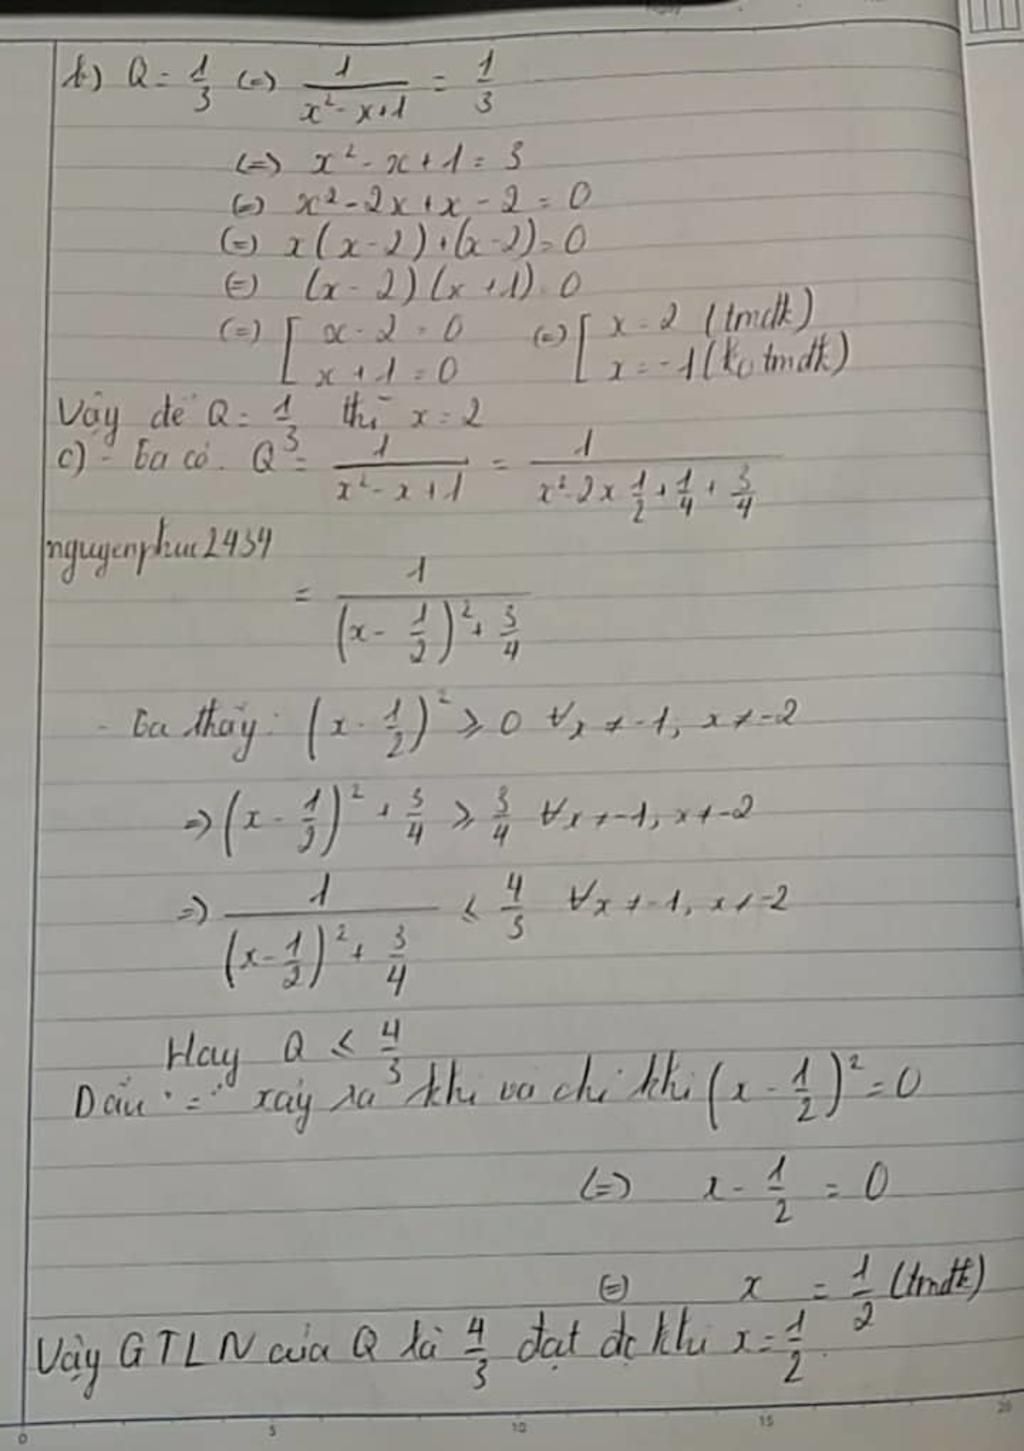 b) Q = 1/3 (=) 1/(x² - x + 1) = 1/3
(=) x² - x + 1 = 3
(=) x² - 2x + x - 2 = 0
(=) x(x - 2) + (x - 2) = 0
(=) (x - 2)(x + 1) = 0
(=) [ x - 2 = 0 (=) [ x = 2 (tmđk)
x + 1 = 0 x = -1 (ko tmđk)
Vậy để Q = 1/3 thì x = 2
c) - Ta có: Q = 1/(x² - x + 1) = 1/(x² - 2x 1/2 + 1/4 + 3/4)
nguyenphuc2434
= 1/((x - 1/2)² + 3/4)
- Ta thấy: (x - 1/2)² ≥ 0 ∀x ≠ -1, x ≠ -2
=> (x - 1/2)² + 3/4 ≥ 3/4 ∀x ≠ -1, x ≠ -2
=> 1/((x - 1/2)² + 3/4) ≤ 4/3 ∀x ≠ -1, x ≠ -2
Hay Q ≤ 4/3
Dấu "=" xảy ra khi và chỉ khi (x - 1/2)² = 0
(=) x - 1/2 = 0
(=) x = 1/2 (tmđk)
Vậy GTLN của Q là 4/3 đạt đc khi x = 1/2.
0 5 10 15 20